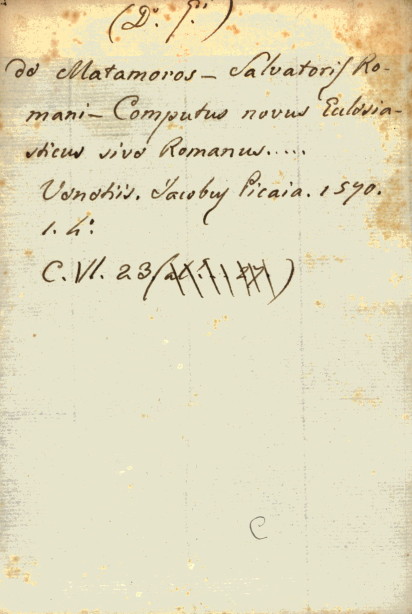 (D. J.)
de Matamoros – Salvatoris Ro-
mani – Computus novus Eclesia-
sticus sive Romanus....
Venetiis. Jacobus Picaia. 1570.
1. 4.º
C. VI. 23 (
C